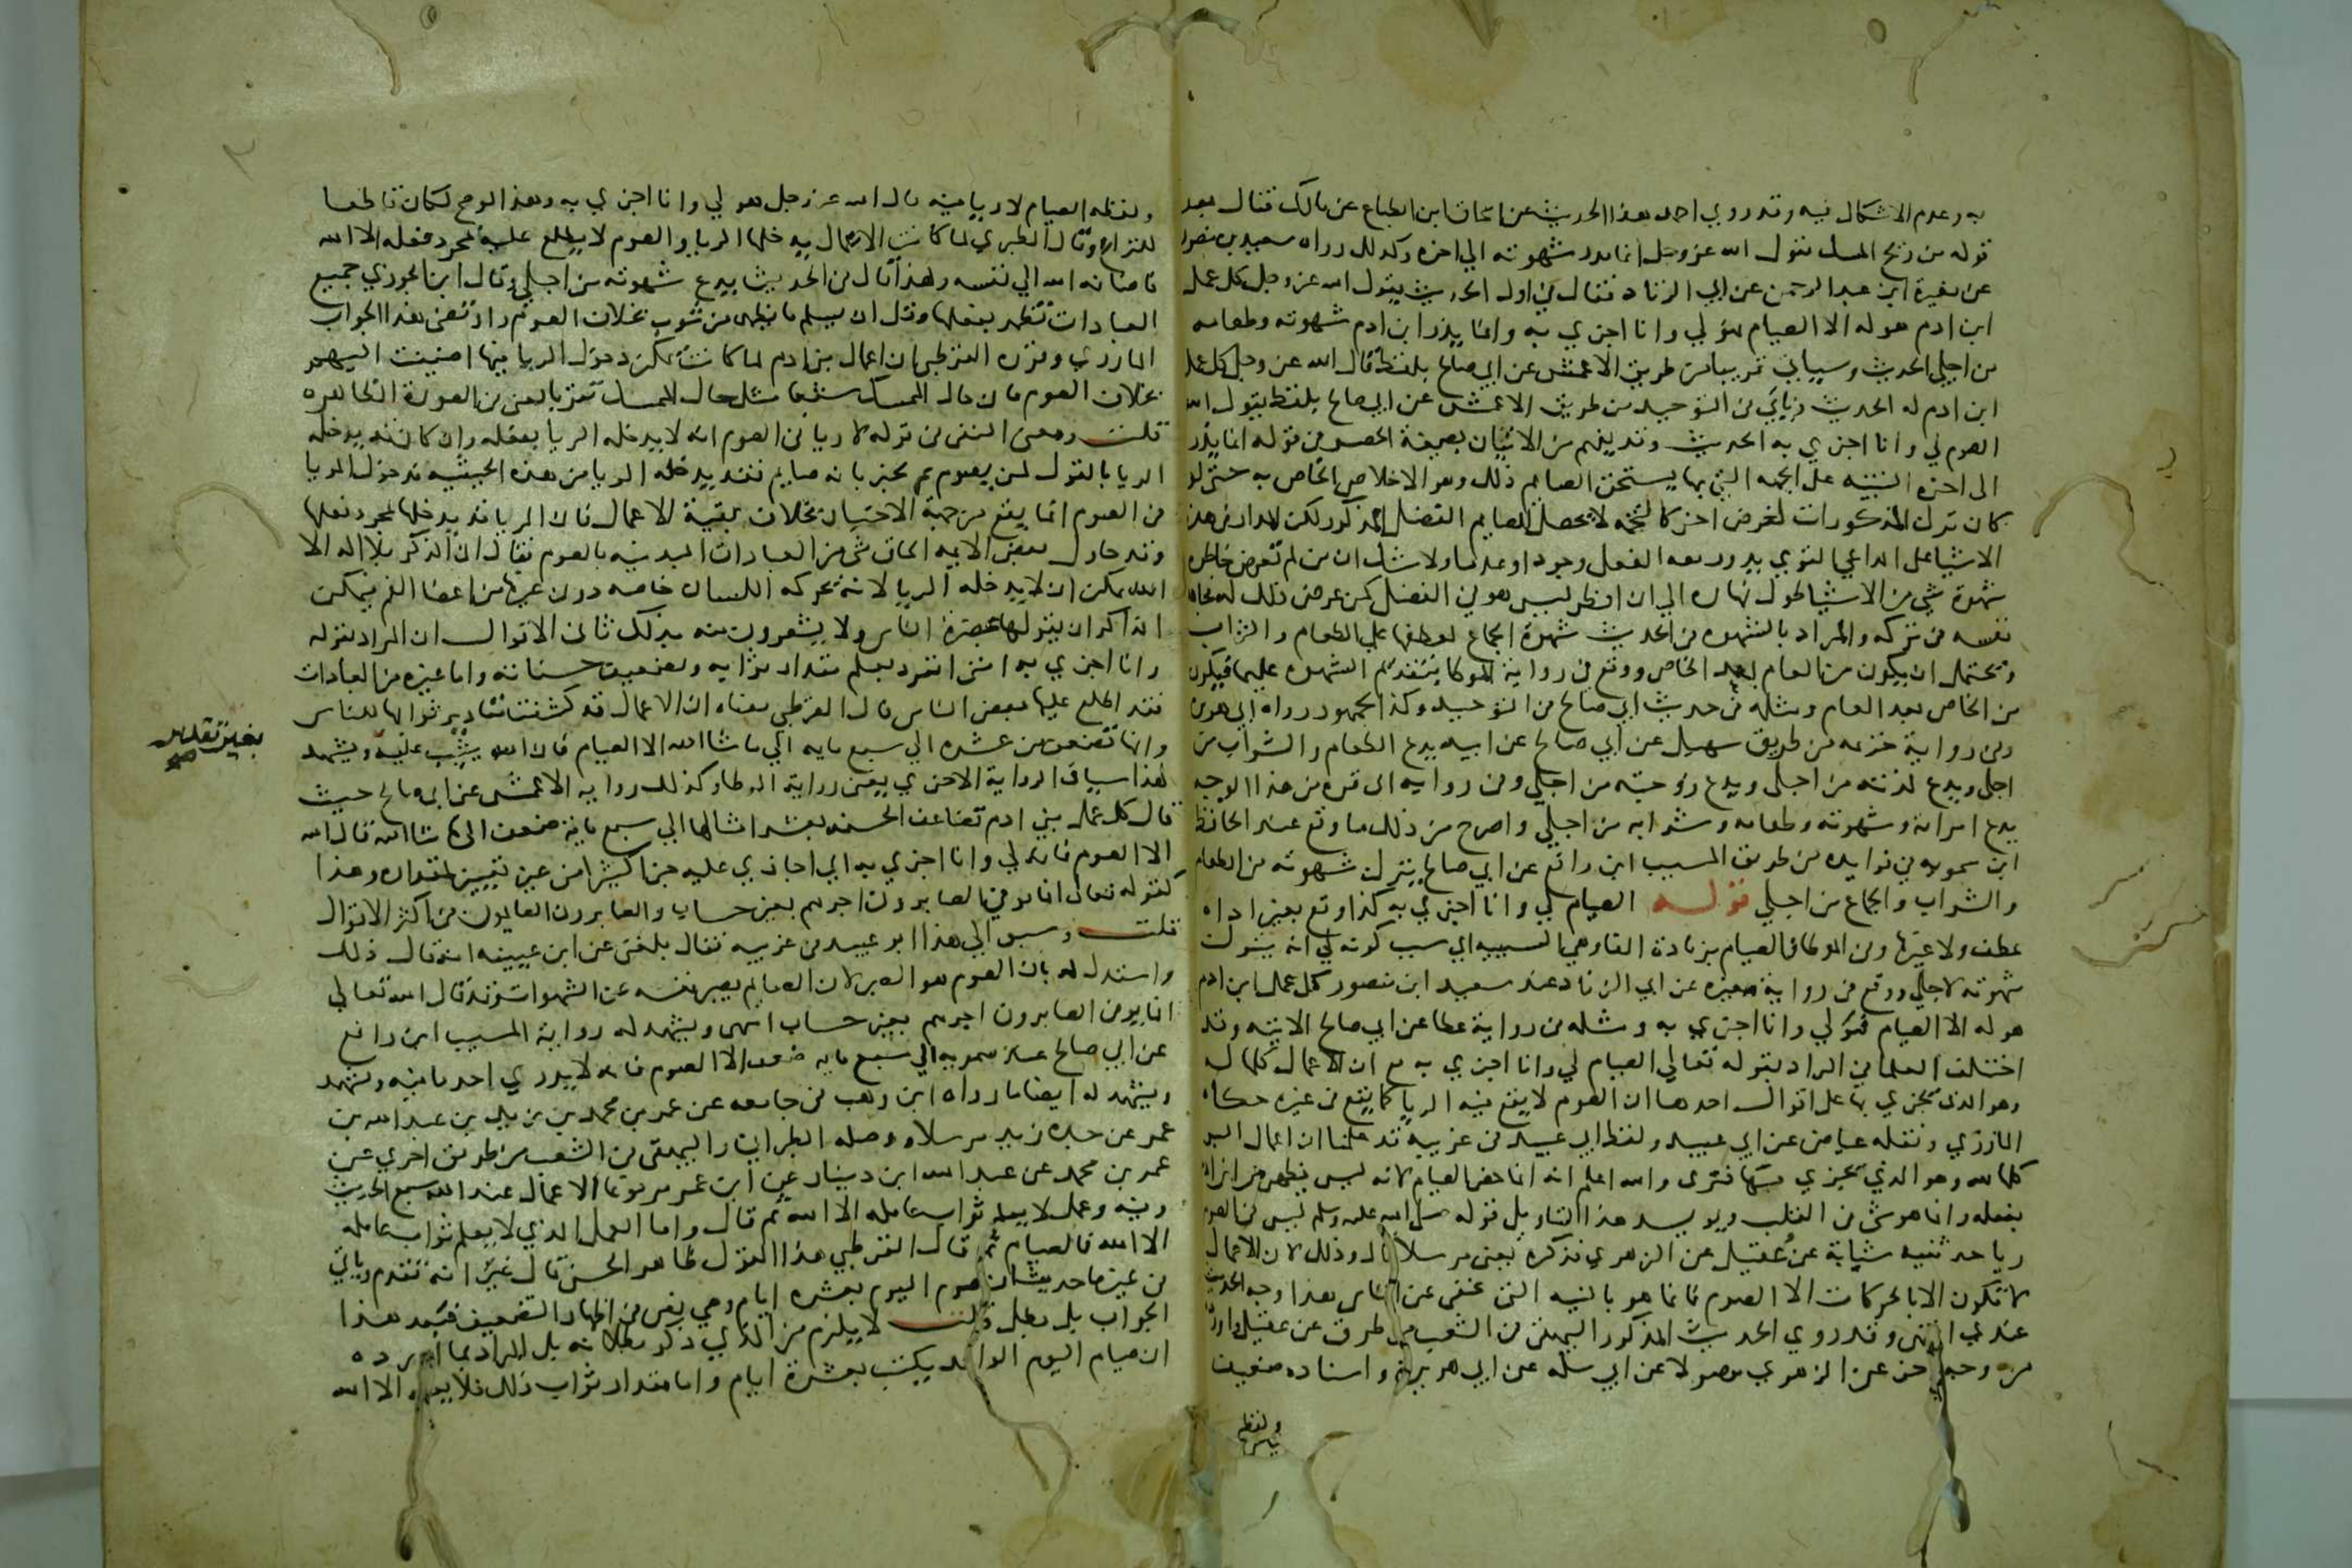 به وعدم الاشكال فيه وقد روي احمد هذا الحديث عن اسحاق ابن الطباع عن مالك فقال بعد
قوله من ريح المسك يقول الله عز وجل انما يذر شهوته الي اخره وكذلك رواه سعيد بن منصور
عن مغيرة ابن عبد الرحمن عن ابي الزناد فقال في اول الحديث يقول الله عز وجل كل عمل
ابن ادم هو له الا الصيام فهو لي وانا اجزي به وانما يذر ابن ادم شهوته وطعامه
من اجلي الحديث وسياتي قريبا من طريق الاعمش عن ابي صالح بلفظ قال الله عز وجل كل عمل
ابن ادم له الحديث وياتي في التوحيد من طريق الاعمش عن ابي صالح بلفظ يقول الله
الصوم لي وانا اجزي به الحديث وقد يفهم من الاتيان بصيغة الحصر في قوله انما يذر
الى اخره التنبيه على الجهه التي بها يستحق الصايم ذلك وهو الاخلاص الخاص به حتى لو
كان ترك المذكورات لغرض اخر كالتخمه لا يحصل للصايم الفضل المذكور لكن المدار في هذه
الاشيا على الداعي القوي يدور معه الفعل وجودا وعدما ولا شك ان من لم تعرض خاطره
شهوة شي من الاشيا طول نهاره الي ان افطر ليس هو في الفضل كمن عرض ذلك له فجاهد
نفسه في تركه والمراد بالشهوه في الحديث شهوة الجماع لعطفها علي الطعام والشراب
ويحتمل ان يكون من العام بعد الخاص ووقع في رواية الموطا بتقديم الشهوه عليهما فيكون
من الخاص بعد العام ومثله في حديث ابي صالح في التوحيد وكذا الجمهور رواه ابي هريرة
وفي رواية خزيمه من طريق سهيل عن ابي صالح عن ابيه يدع الطعام والشراب من
اجلي ويدع لذته من اجلي ويدع زوجته من اجلي وفي روايه ابي قره من هذا الوجه
يدع امراته وشهوته وطعامه وشرابه من اجلي واصرح من ذلك ما وقع عند الحافظ
ابن سمويه في فوايده من طريق المسيب ابن رافع عن ابي صالح يترك شهوته من الطعام
والشراب والجماع من اجلي قوله الصيام لي وانا اجزي به كذا وقع بغير اداه
عطف ولا غيرها وفي الموطا فالصيام بزيادة الفا وهي للسببيه اي سبب كونه لي انه يترك
شهوته لاجلي ووقع في رواية مغيره عن ابي الزناد عند سعيد ابن منصور كل عمل ابن ادم
هو له الا الصيام فهو لي وانا اجزي به ومثله في رواية عطا عن ابي صالح الاتيه وقد
اختلف العلما في المراد بقوله تعالي الصيام لي وانا اجزي به مع ان الاعمال كلها له
وهو الذي يجزي بها على اقوال احدها ان الصوم لا يقع فيه الريا كما يقع في غيره حكاه
المازري ونقله عياض عن ابي عبيد ولفظ ابي عبيد في غريبه قد علمنا ان اعمال البر
كلها لله وهو الذي يجزي بها فنرى والله اعلم انه انما خص الصيام لانه ليس يظهر من ابن ادم
بفعله وانما هو شي في القلب ويويد هذا التاويل قوله صلى الله عليه وسلم ليس في الصوم
ريا حدثنيه شبابة عن عقيل عن الزهري فذكره يعني مرسلا قال وذلك لان الاعمال
لا تكون الا بالحركات الا الصوم فانما هو بالنيه التي تخفى عن الناس هذا وجه الحديث
عندي انتهى وقد روي الحديث المذكور البيهقي في الشعب من طرق عن عقيل واورده
من وجه اخر عن الزهري موصولا عن ابي سلمه عن ابي هريرة واسناده ضعيف
ولفظه
ولفظه الصيام لا ريا فيه قال الله عز وجل هو لي وانا اجزي به وهذا لو صح لكان قاطعا
للنزاع وقال الطبري لما كانت الاعمال يدخلها الريا والصوم لا يطلع عليه بمجرد فعله الا الله
فاضافه الله الي نفسه ولهذا قال في الحديث يدع شهوته من اجلي وقال ابن الجوزي جميع
العبادات تظهر بفعلها وقل ان يسلم ما يظهر من شوب بخلاف الصوم وارتضى هذا الجواب
المازري وقرره القرطبي بان اعمال بني ادم لما كانت يمكن دخول الريا فيها اضيفت اليهم
بخلاف الصوم فان حال الممسك شبعا مثل حال الممسك تقربا يعني في الصورة الظاهره
قلت ومعنى النفي في قوله لا ريا في الصوم انه لا يدخله الريا بفعله وان كان قد يدخله
الريا بالقول كمن يصوم ثم يخبر بانه صايم فقد يدخله الريا من هذه الحيثيه فدخول الريا
في الصوم انما يقع من جهة الاخبار بخلاف بقية الاعمال فان الريا قد يدخلها بمجرد فعلها
وقد حاول بعض الايمه الحاق شي من العبادات البدنيه بالصوم فقال ان الذكر بلا اله الا
الله يمكن ان لا يدخله الريا لانه بحركه اللسان خاصه دون غيرها من اعضا الفم فيمكن
الذاكر ان يقولها بحضرة الناس ولا يشعرون منه بذلك ثاني الاقوال ان المراد بقوله
وانا اجزي به اني انفرد بعلم مقدار ثوابه وتضعيف حسناته واما غيره من العبادات
فقد اطلع عليها بعض الناس قال القرطبي معناه ان الاعمال قد كشفت مقادير ثوابها للناس
وانها تضعف من عشره الي سبع مايه الي ما شا الله الا الصيام فان الله يثيب عليه ويشهد
بغير تقدير
صح
لهذا سياق الرواية الاخري يعني رواية الموطا وكذلك روايه الاعمش عن ابي صالح حيث
قال كل عمل بني ادم تضاعف الحسنه بعشر امثالها الي سبع ماية ضعف الى ما شا الله قال الله
الا الصوم فانه لي وانا اجزي به اي اجازي عليه جزا كثيرا من غير تعيين لمقداره وهذا
كقوله تعالى انما يوفى الصابرون اجرهم بغير حساب والصابرون الصايمون في اكثر الاقوال
قلت وسبق الي هذا ابو عبيد في غريبه فقال بلغني عن ابن عيينه انه قال ذلك
واستدل له بان الصوم هو الصبر لان الصايم يصبر نفسه عن الشهوات وقد قال الله تعالى
انما يوفى الصابرون اجرهم بغير حساب انتهى ويشهد له رواية المسيب ابن رافع
عن ابي صالح عند سمويه الي سبع مايه ضعف الا الصوم فانه لا يدري احد ما فيه ويشهد
ويشهد له ايضا ما رواه ابن وهب في جامعه عن عمر بن محمد بن زيد بن عبد الله بن
عمر عن جده زيد مرسلا ووصله الطبراني والبيهقي في الشعب من طريق اخري عن
عمر بن محمد عن عبد الله ابن دينار عن ابن عمر مرفوعا الاعمال عند الله سبع الحديث
وفيه وعمل لا يعلم ثواب عامله الا الله ثم قال واما العمل الذي لا يعلم ثواب عامله
الا الله فالصيام ثم قال القرطبي هذا القول ظاهر الحسن قال غير انه تقدم وياتي
في غير ما حديث ان صوم اليوم بعشره ايام وهي نص في اظهار التضعيف فبعد هذا
الجواب بل بطل قلت لا يلزم من الذي ذكر بطلانه بل المراد بما اورده
ان صيام اليوم الواحد يكتب بعشرة ايام واما مقدار ثواب ذلك فلا يعلمه الا الله